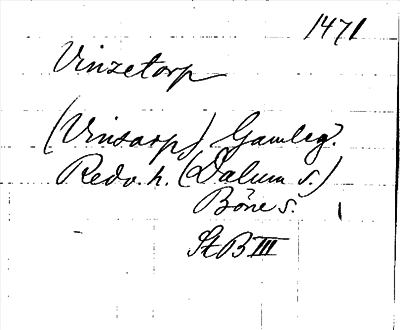 1471
Vinzetorp
(Vinsarp) Gamleg.
Redv. h. (Dalum s.)
Böne s.
St B III